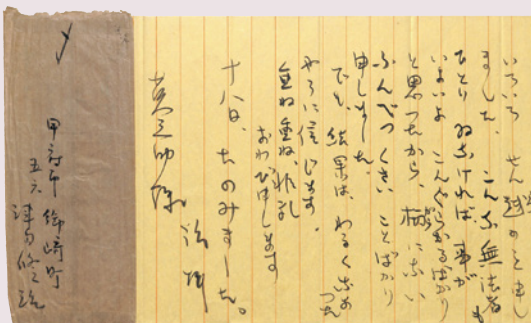 いろいろ せん越のことを申し
ました。 こんな無法者も
ひとり ゐなければ、事が
いよいよ こんぐらかるばかり
と思つたから、柄にない
ふんべつくさい ことばかり
申しました。
でも、結果は、わるくなかつた
やうに信じます。
重ね重ね、非礼
おわび申します
十八日、たのみました。
治拝
英之助様
〆
甲府市 御崎町
五六
津島修治